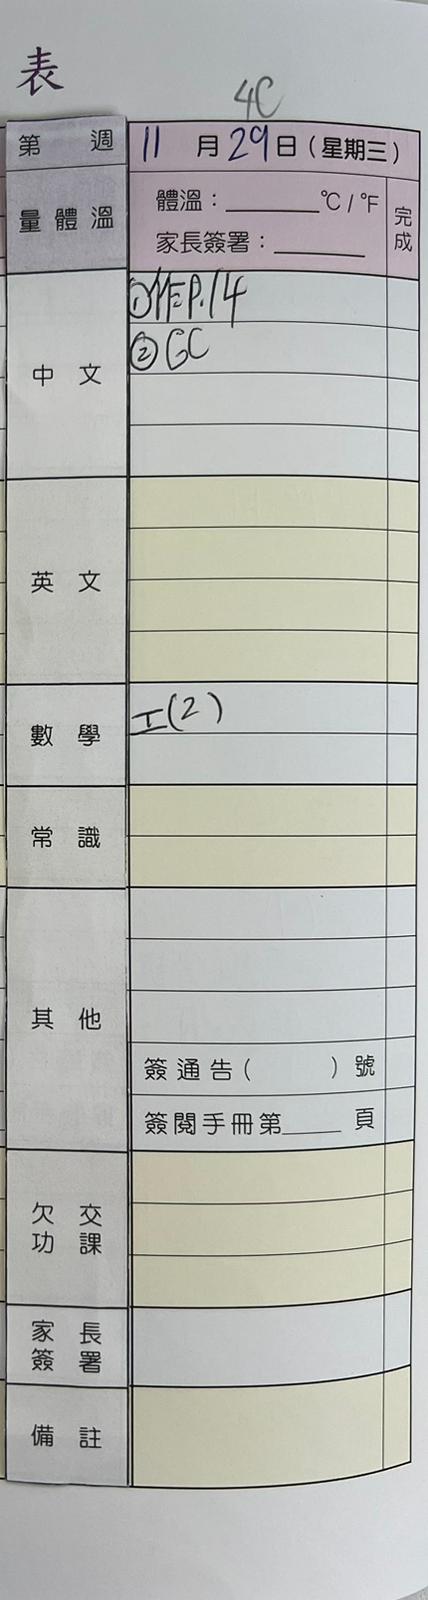 表
4C
第 週 11 月 29 日 (星期三)
量體溫 體溫:______°C / °F 完成
家長簽署:______
中 文 ①作P.14
②GC
英 文
數 學 工(2)
常 識
其 他
簽通告( ) 號
簽閱手冊第____ 頁
欠 交
功 課
家 長
簽 署
備 註